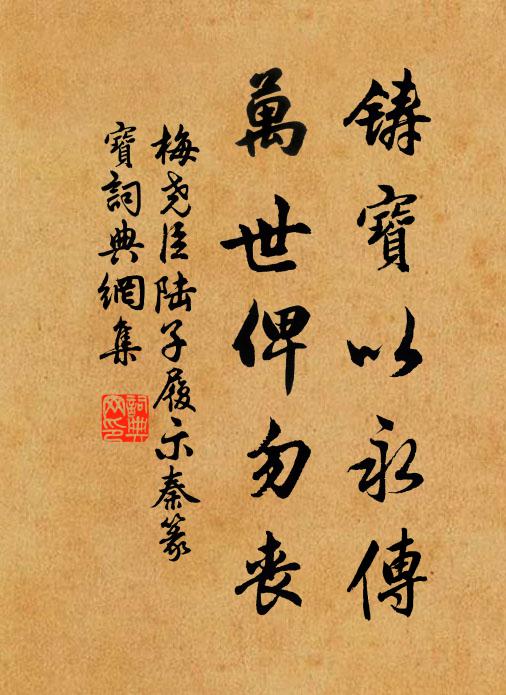 鑄寶以永傳
萬世俾勿喪
梅堯臣陸子履示秦篆
寶詞典網集
詞典
网印